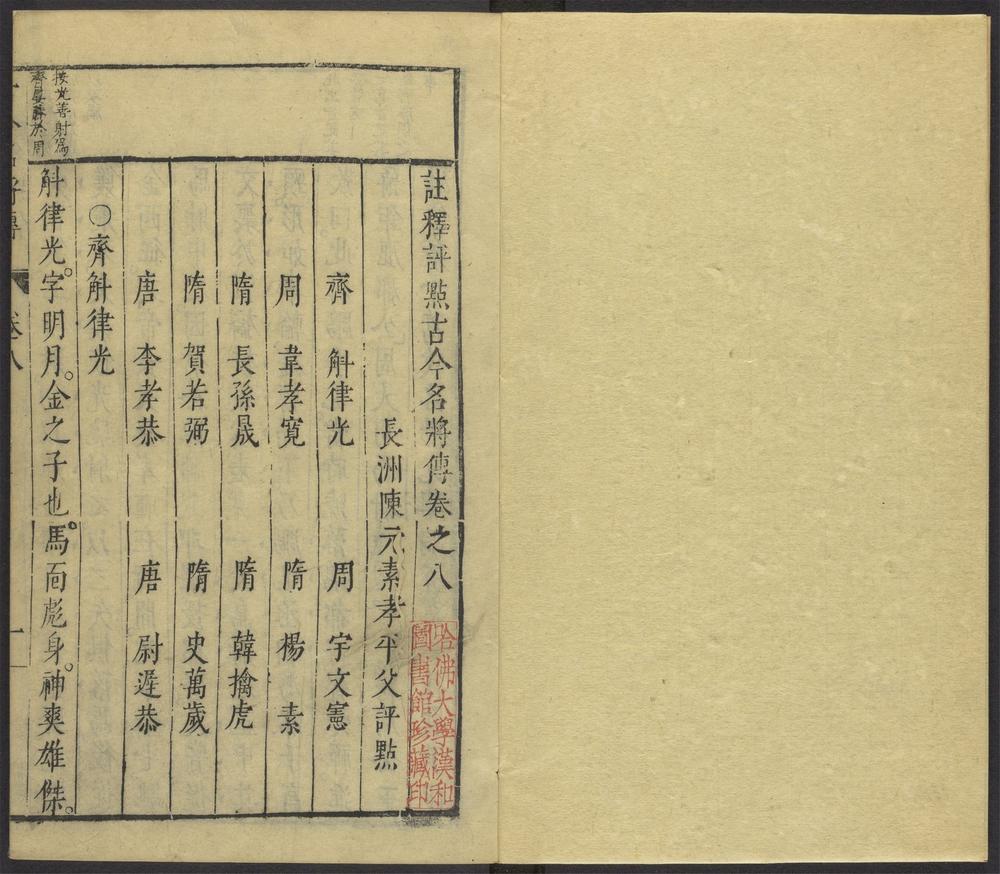 註釋評點古今名將傳卷之八
長洲陳元素孝平父評點
齊 斛律光 周 宇文憲
周 韋孝寬 隋 楊 素
隋 長孫晟 隋 韓擒虎
隋 賀若弼 隋 史萬歲
唐 李孝恭 唐 尉遲恭
○齊斛律光
按光善射爲
齊
於周
斛律光。字明月。金之子也。馬面彪身。神爽雄傑。
名將傳 卷八 一
哈佛大學漢和
圖書館珍藏印